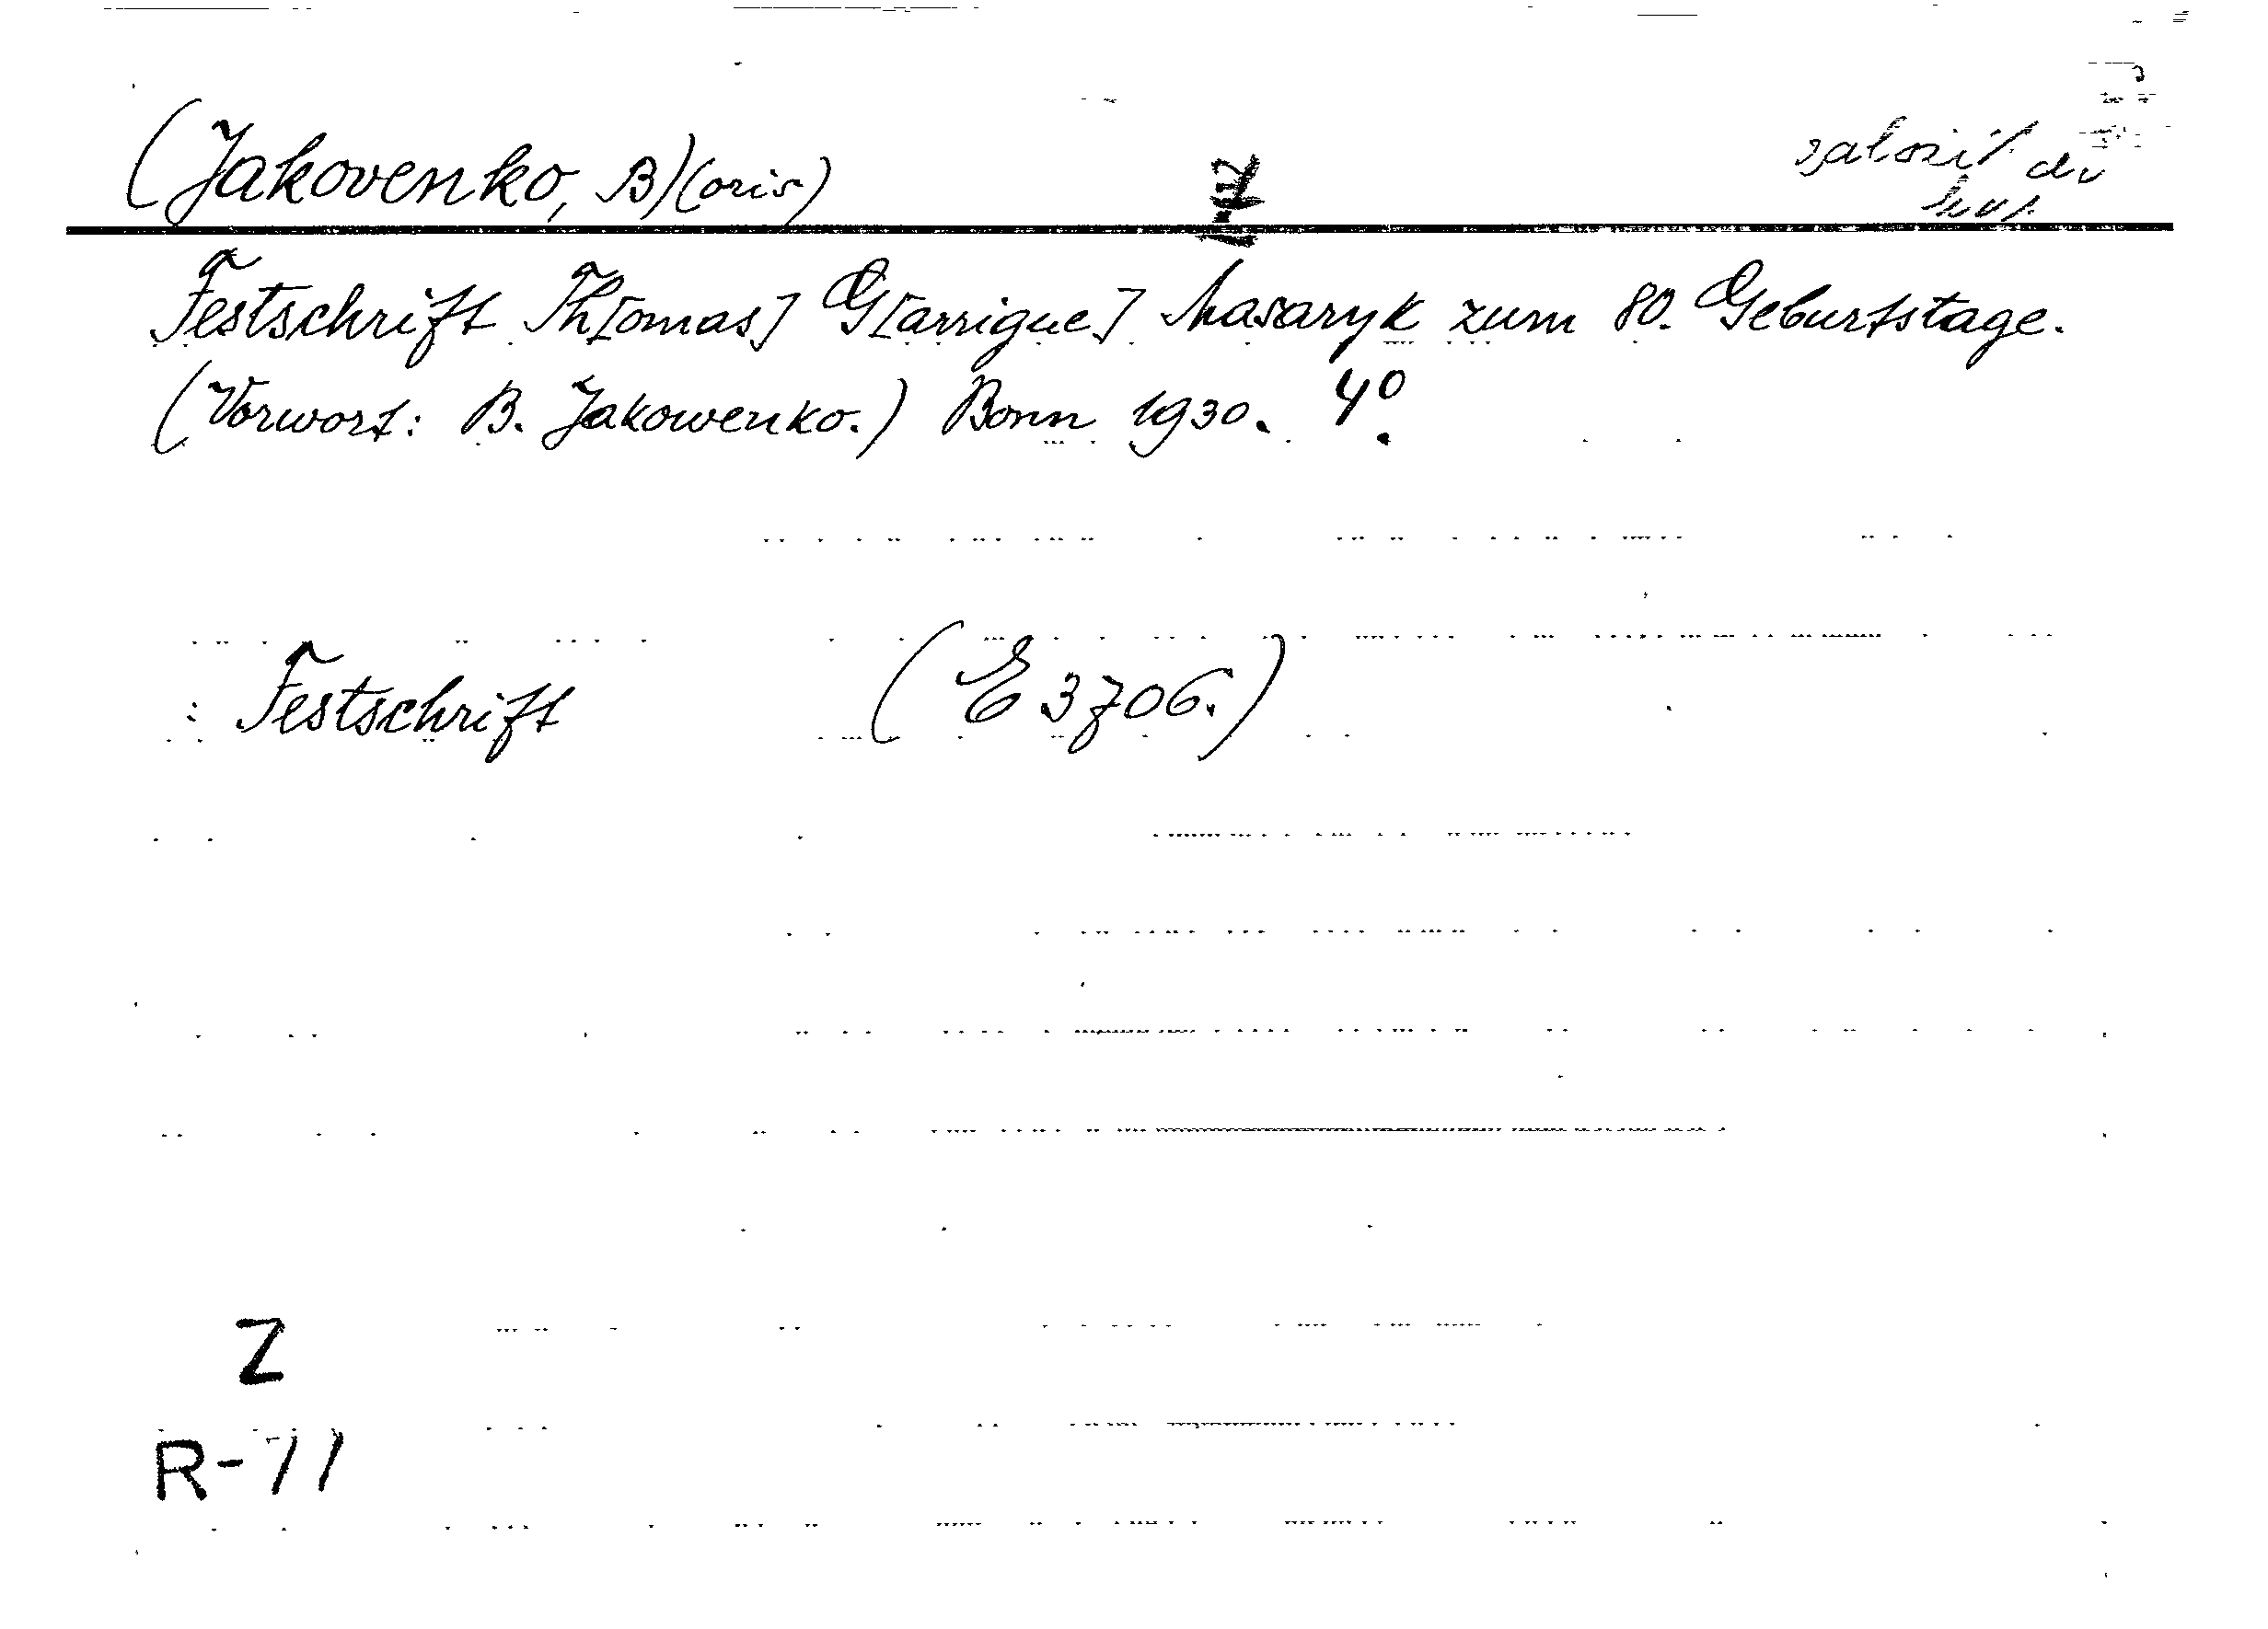 (Jakovenko, B)(oris)
založit do
Festschrift Th[omas] G[arrigue] Masaryk zum 80. Geburtstage.
(Vorwort: B. Jakowenko.) Bonn 1930. 4º.
: Festschrift (E 3706.)
Z
R-71